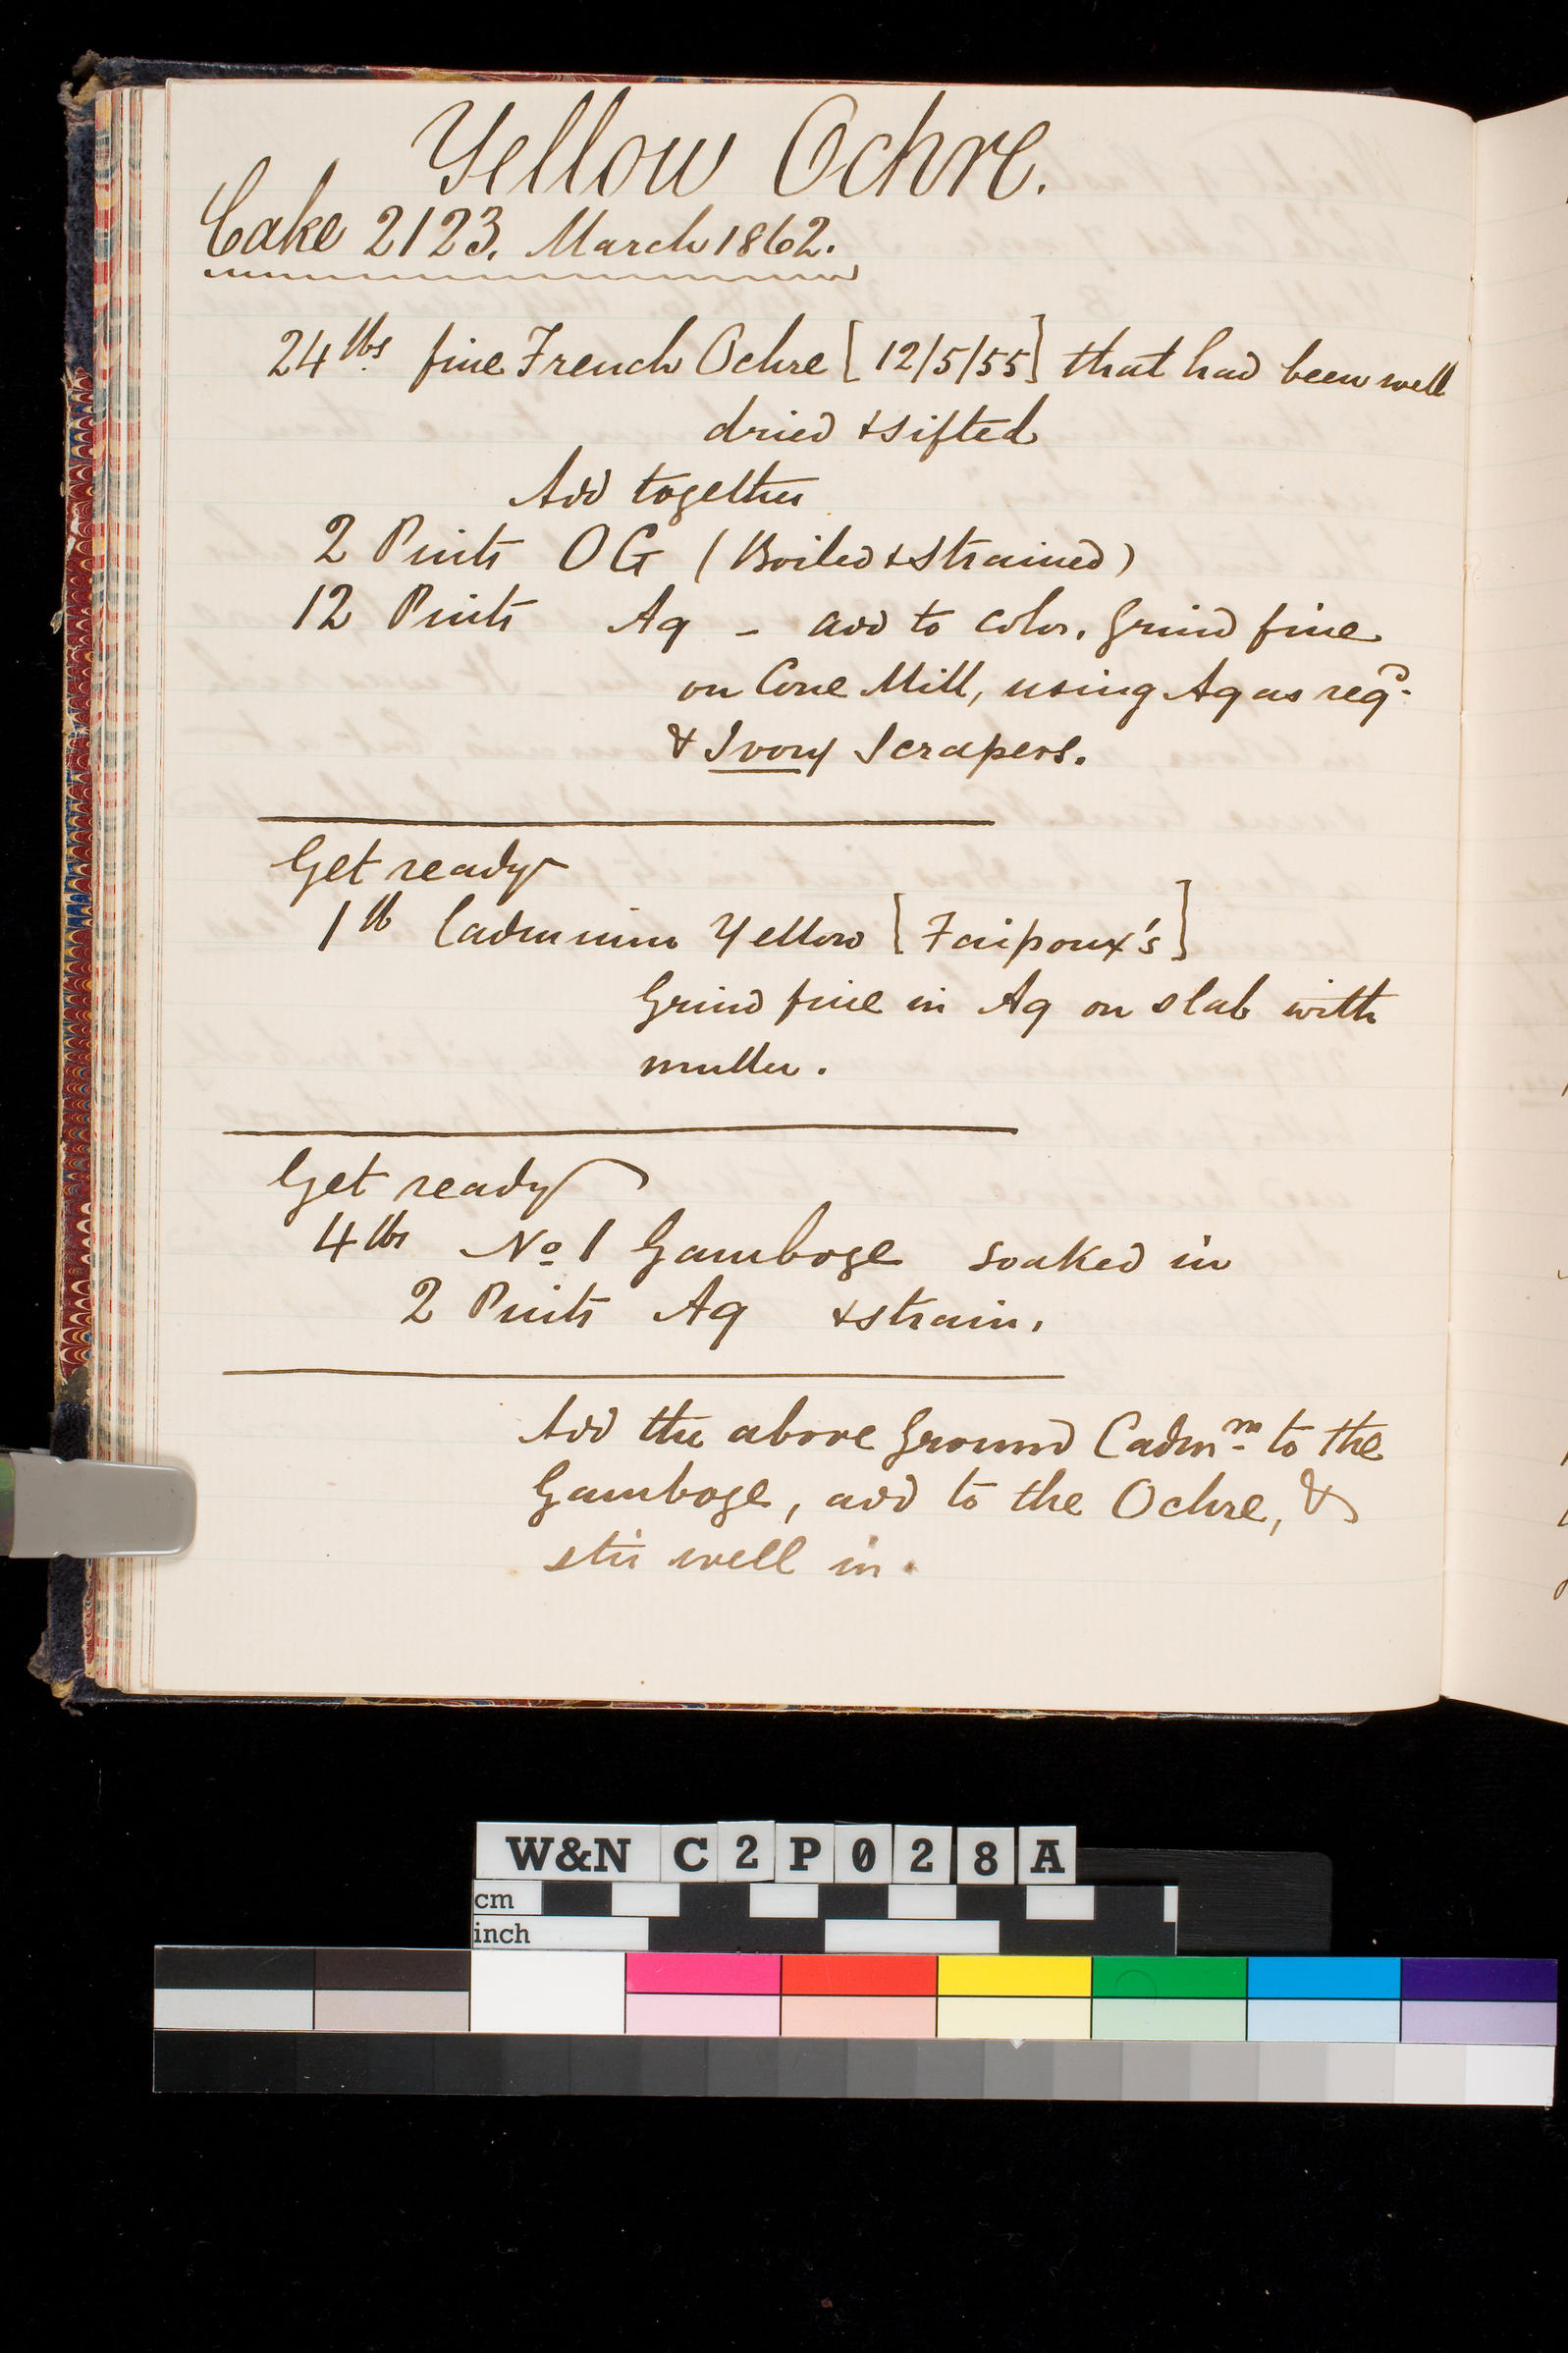 Yellow Ochre.
Cake 2123. March 1862.
24 lbs fine French Ochre [12/5/55] that had been well
dried & sifted
Add together
2 Pints OG (Boiled & strained)
12 Pints Aq - add to color. Grind fine
on Cone Mill, using Aq as reqd.
& Ivory Scrapers.
Get ready
1 lb Cadmium Yellow [Faipoux's]
Grind fine in Aq on slab with
muller.
Get ready
4 lbs No 1 Gamboge soaked in
2 Pints Aq & strain.
Add the above ground Cadmm. to the
Gamboge, add to the Ochre, &
stir well in.
W&N C2P028A
cm
inch